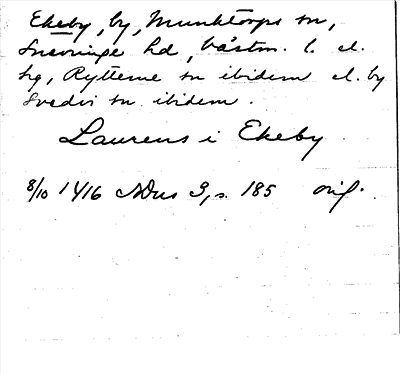 Ekeby, by, Munktorps sn,
Snevringe hd, Västm. l. el.
hg, Rytterne sn ibidem el. by
Svedvi sn ibidem.
Laurens i Ekeby
8/10 1416 SDns 3, s. 185 orig.